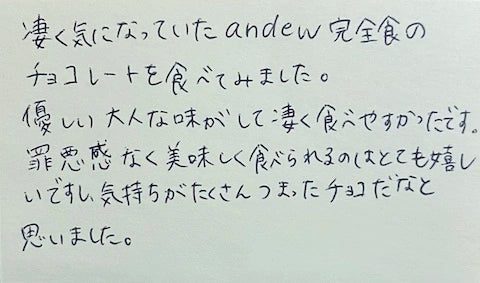 凄く気になっていたandew完全食の
チョコレートを食べてみました。
優しい大人な味がして凄く食べやすかったです。
罪悪感なく美味しく食べられるのはとても嬉し
いですし、気持ちがたくさんつまったチョコだなと
思いました。